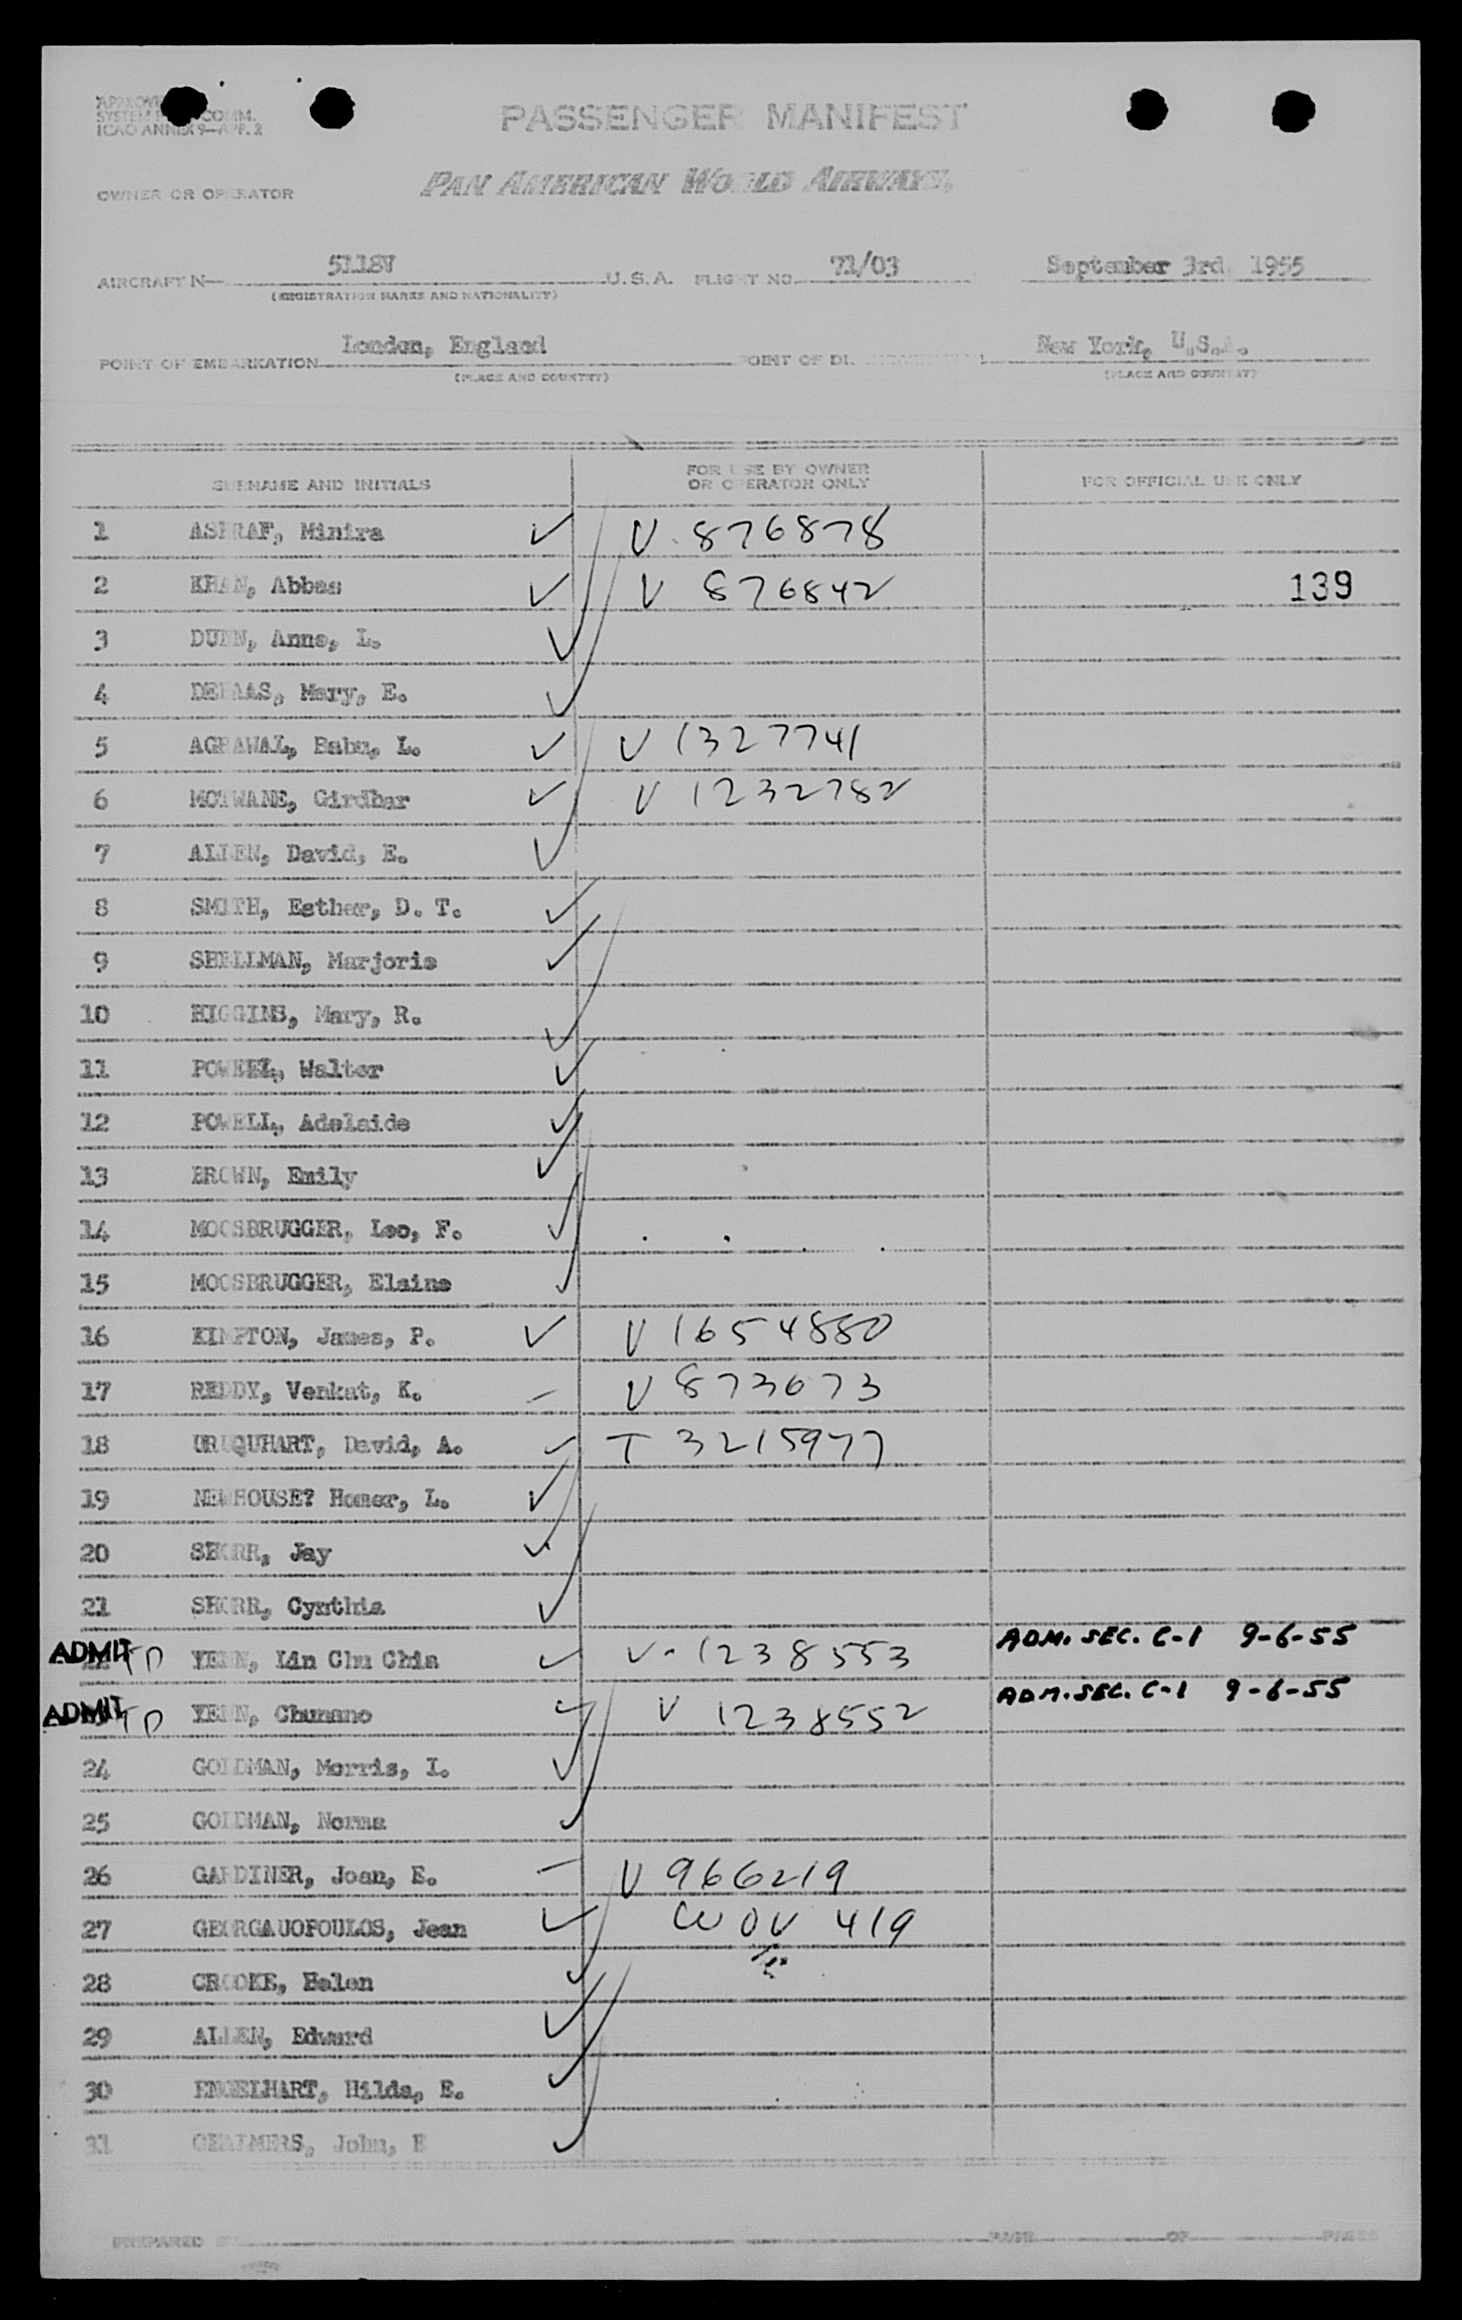 APPROVED
SYSTEM COMM.
ICAO ANNEX 9—APP. 2
PASSENGER MANIFEST
OWNER OR OPERATOR
PAN AMERICAN WORLD AIRWAYS,
AIRCRAFT N— 5118V U.S.A. FLIGHT NO. 71/03 September 3rd, 1955
(REGISTRATION MARKS AND NATIONALITY)
POINT OF EMBARKATION London, England POINT OF New York, U.S.A.
(PLACE AND COUNTRY) (PLACE AND COUNTRY)
SURNAME AND INITIALS FOR USE BY OWNER OR OPERATOR ONLY FOR OFFICIAL USE ONLY
1 ASHRAF, Minira ✓ V. 876878
2 KHAN, Abbas ✓ V 876842 139
3 DUNN, Anne, L. ✓
4 Mary, E. ✓
5 AGRAWAL, Babu, L. ✓ V 1327741
6 MOTWANE, Girdhar ✓ V 1232782
7 ALLEN, David, E. ✓
8 SMITH, Esther, D. T. ✓
9 Marjorie ✓
10 HIGGINS, Mary, R. ✓
11 POWELL, Walter ✓
12 POWELL, Adelaide ✓
13 BROWN, Emily ✓
14 MOOSBRUGGER, Leo, F. ✓
15 MOOSBRUGGER, Elaine ✓
16 KIMPTON, James, P. ✓ V 1654880
17 REDDY, Venkat, K. – V 873673
18 URQUHART, David, A. ✓ T 3215977
19 NEWHOUSE? Homer, L. ✓
20 SHORR, Jay ✓
21 SHORR, Cynthia ✓
ADMIT TD 22 YENN, Lin Chu Chia ✓ V-1238553 ADM. SEC. C-1 9-6-55
ADMIT TD YENN, Chunano ✓ V 1238552 ADM. SEC. C-1 9-6-55
24 GOLDMAN, Morris, I. ✓
25 GOLDMAN, Norma ✓
26 GARDINER, Joan, E. – V 966219
27 GEORGAUOPOULOS, Jean ✓ 419
28 CROOKE, Helen ✓
29 ALLEN, Edward ✓
30 ENGELHART, Hilda, E. ✓
31 CHALMERS, John, E ✓
PREPARED PAGE OF PAGES